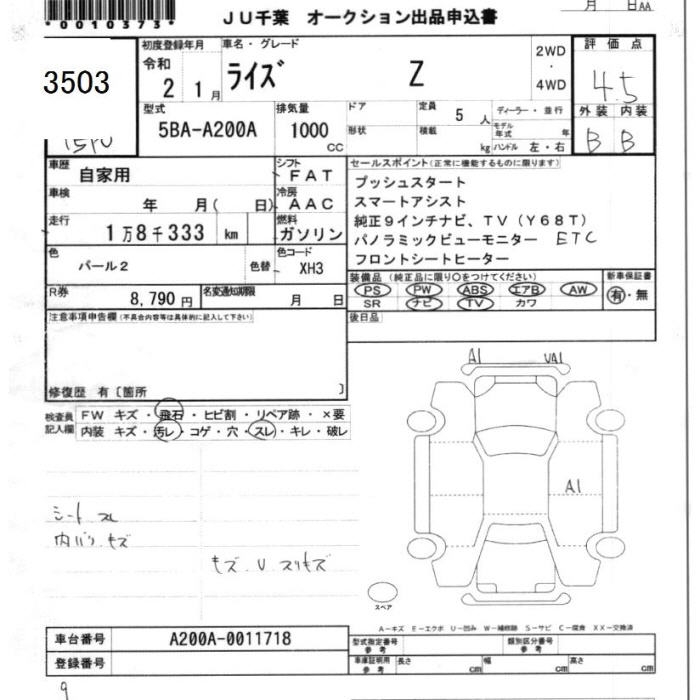 *0010373*
月 日AA
JU千葉 オークション出品申込書
3503
初度登録年月 車名・グレード 2WD・4WD 評価点
令和 2 1月 ライズ Z 4.5
型式 排気量 ドア 定員 5人 ディーラー・並行 外装 内装
5BA-A200A 1000 CC 形状 積載 kg モデル年式 年 ハンドル 左・右 B B
車歴 自家用 シフト FAT
セールスポイント(正常に機能するものに限ります)
車検 年 月( 日) 冷房 AAC
プッシュスタート
スマートアシスト
走行 1万8千333 km 燃料 ガソリン
純正9インチナビ、TV(Y68T)
パノラミックビューモニター ETC
フロントシートヒーター
色 パール2 色替 色コード XH3
装備品(純正品に限り○をつけてください) 新車保証書
PS PW ABS エアB AW 有・無
SR ナビ TV カワ
R券 8,790円 名変通知期限 月 日
注意事項申告欄(不具合内容等は具体的に記入して下さい) 後日品
修復歴 有〔箇所 〕
検査員記入欄
FW キズ・飛石・ヒビ割・リペア跡・×要
内装 キズ・汚レ・コゲ・穴・スレ・キレ・破レ
A1 UA1
A1
シート スレ
内バリ キズ
キズ.U.スリキズ
スペア
A-キズ E-エクボ U-凹み W-補修跡 S-サビ C-腐食 XX-交換済
車台番号 A200A-0011718
型式指定番号 参考 類別区分番号 参考
登録番号
車庫証明用 参考 長さ cm 幅 cm 高さ cm
9